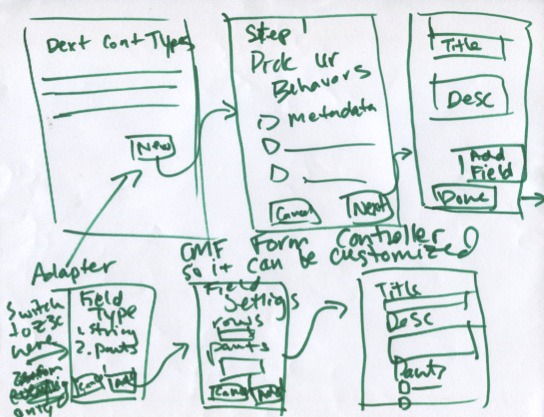 Dext Cont Types
New
Step 1
Pick Ur
Behavors
Metadata
Cancel
Next
Title
Desc
Add
Field
Done
Adapter
CMF Form Controller
so it can be customized
Switch
to Z3c
here
only
Field
Type
1. string
2. pants
Field
Settigs
rows
pants
Title
Desc
Pants